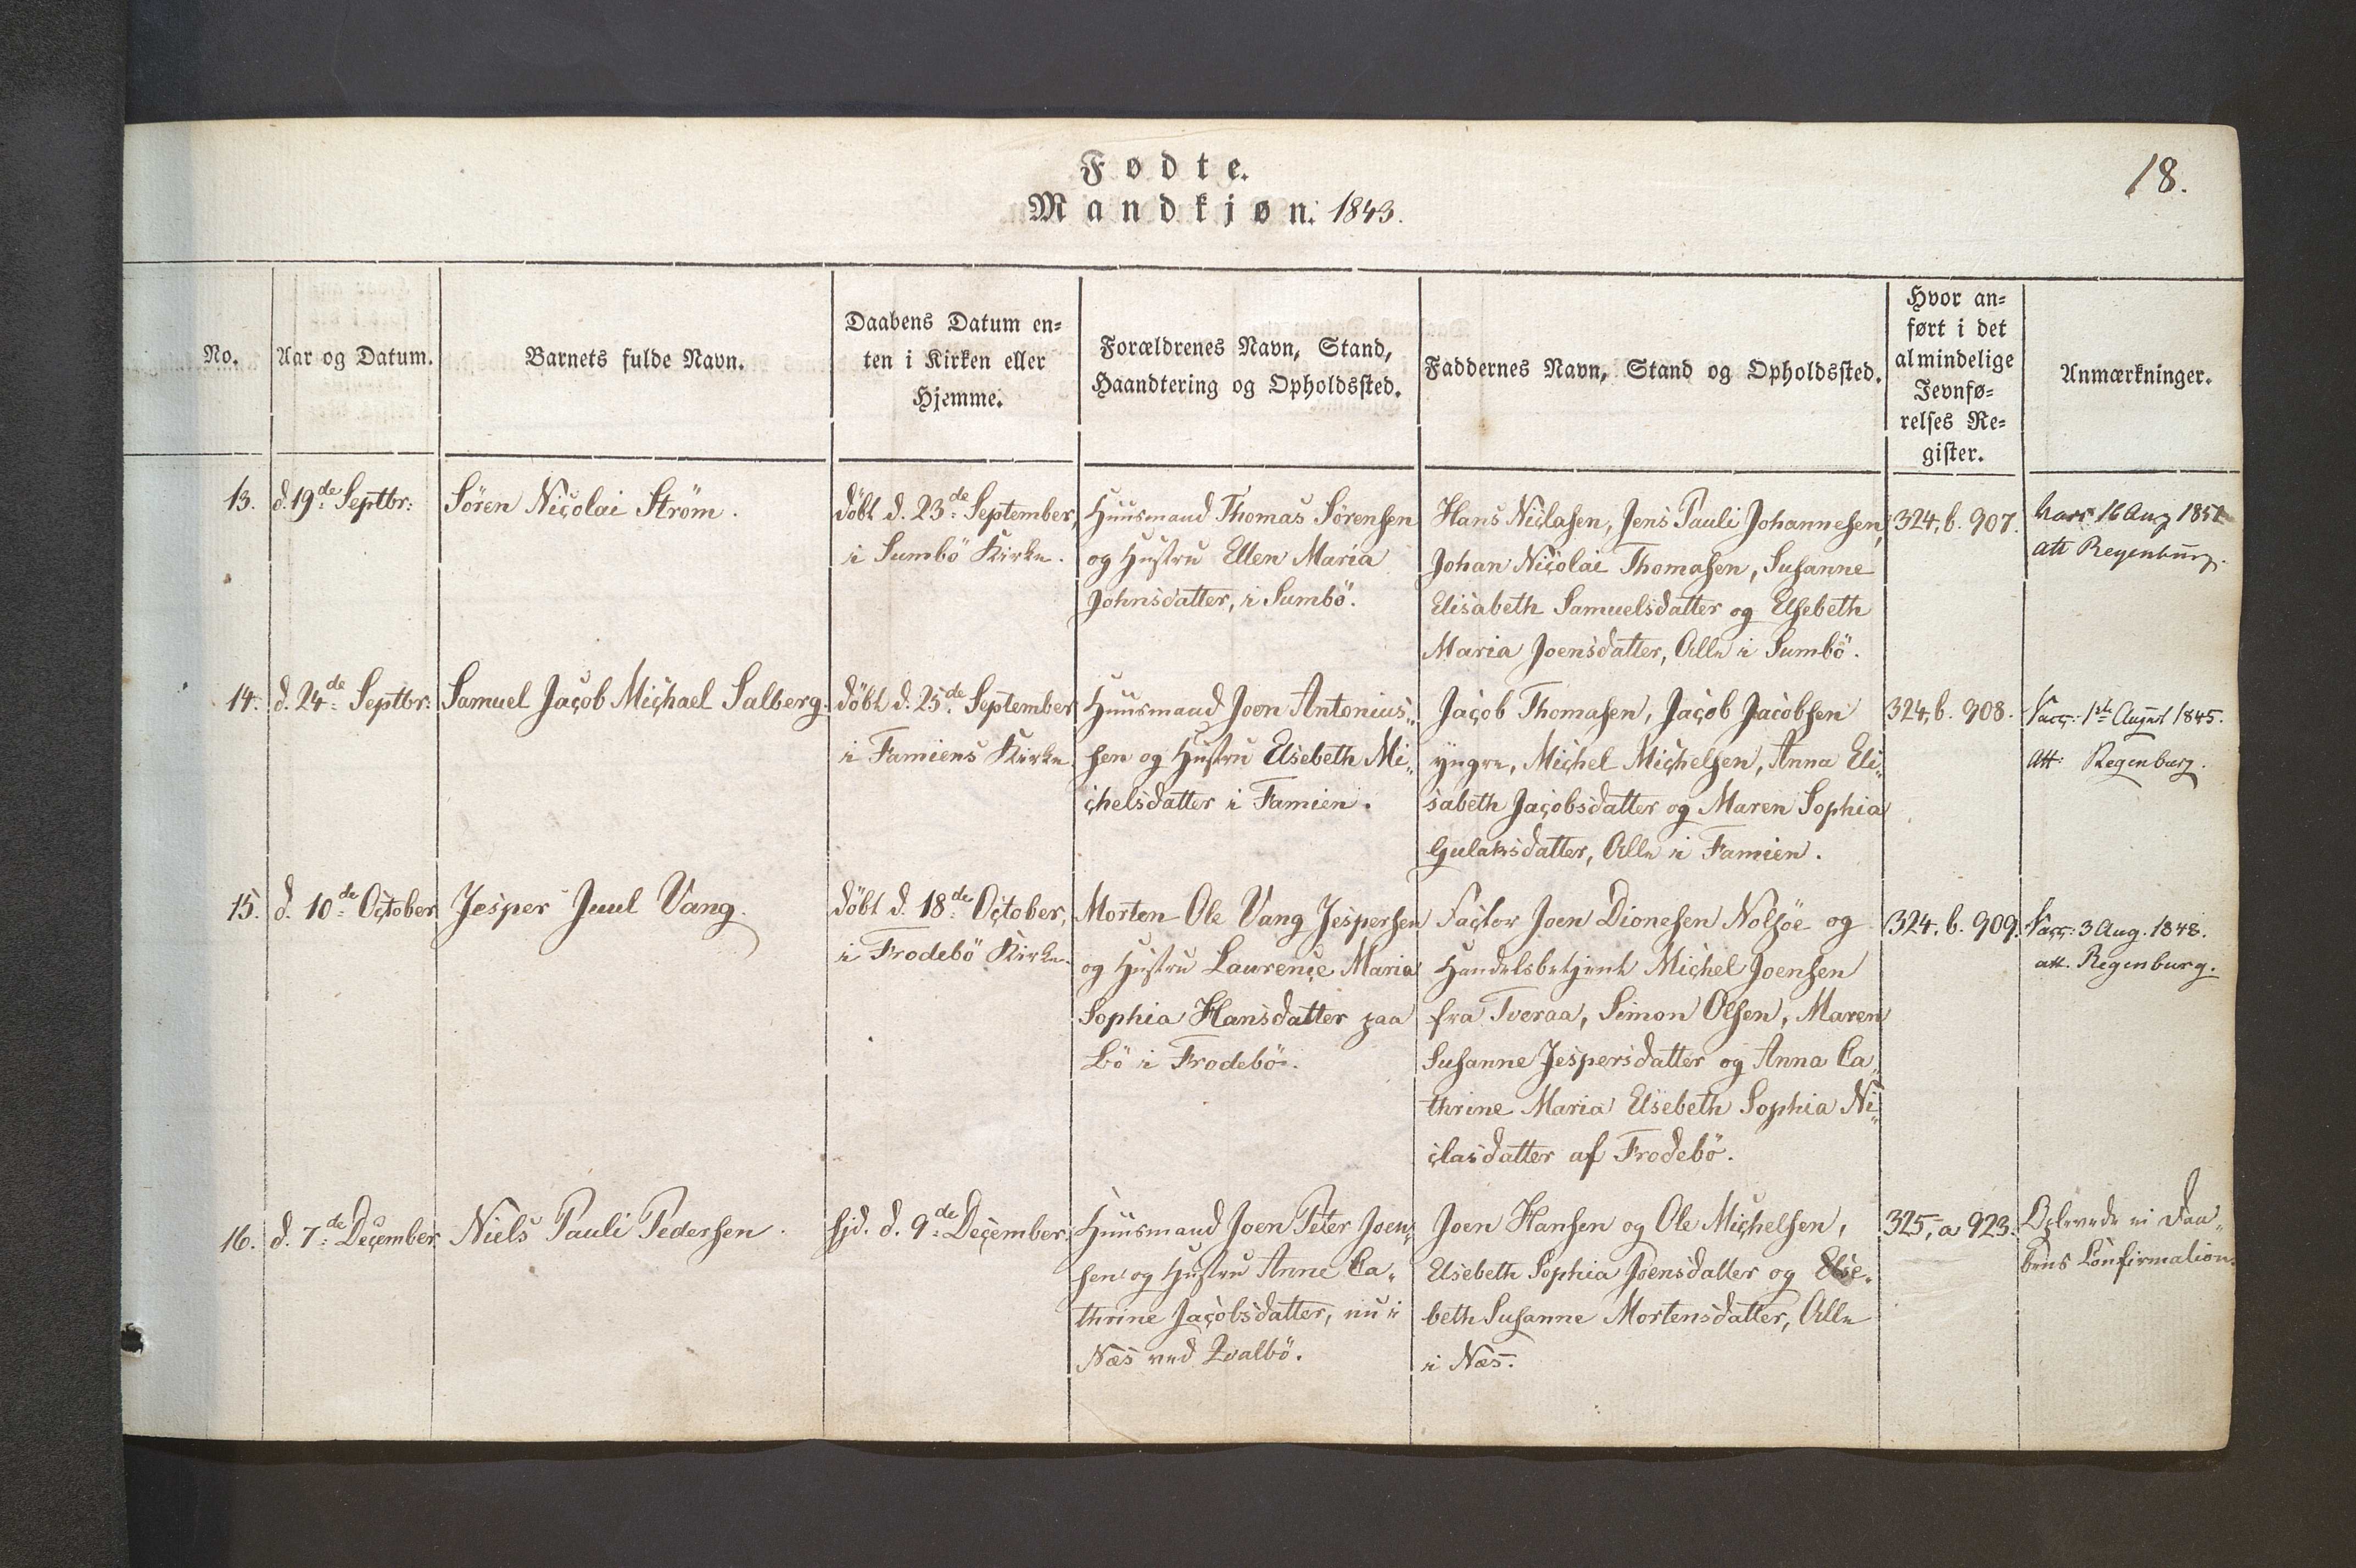 18.
Fødte.
Mandkjøn. 1843.
No.
Aar og Datum.
Barnets fulde Navn.
Daabens Datum en=
ten i Kirken eller
Hjemme.
Forældrenes Navn, Stand,
Haandtering og Opholdssted.
Faddernes Navn, Stand og Opholdssted.
Hvor an=
ført i det
almindelige
Jevnfø=
relses Re=
gister.
Anmærkninger.
13.
d. 19de Septbr:
Sören Nicolai Ström.
döbt d. 23de September,
i Sumbö Kirke.
Huusmand Thomas Sörensen
og Hustru Ellen Maria
Johnsdatter, i Sumbö.
Hans Niclasen, Jens Pauli Johannesen,
Johan Nicolai Thomasen, Susanne
Elisabeth Samuelsdatter og Elsebeth
Maria Joensdatter, Alle i Sumbö.
324, b. 907.
Vacc 16 Aug 1851
att Regenburg.
14.
d. 24de Septbr:
Samuel Jacob Michael Salberg.
döbt d. 25de September
i Famiens Kirke.
Huusmand Joen Antonius„
sen og Hustru Elsebeth Mi„
chelsdatter i Famien.
Jacob Thomasen, Jacob Jacobsen
yngre, Michel Michelsen, Anna Eli„
sabeth Jacobsdatter og Maren Sophia
Gulaksdatter, Alle i Famien.
324, b. 908.
Vacc: 1ste August 1845.
att: Regenburg.
15.
d. 10de October
Jesper Juul Vang.
döbt d. 18de October,
i Frodebö Kirke.
Morten Ole Vang Jespersen
og Hustru Laurence Maria
Sophia Hansdatter paa
Bö i Frodebö.
Factor Joen Dionesen Nolsöe og
Handelsbetjent Michel Joensen
fra Tveraa, Simon Olsen, Maren
Susanne Jespersdatter og Anna Ca„
thrine Maria Elsebeth Sophia Ni„
clasdatter af Frodebö.
324, b. 909.
Vacc: 3 Aug. 1848.
att. Regenburg.
16.
d. 7de December
Niels Pauli Pedersen.
hjd. d. 9de December.
Huusmand Joen Peter Joen„
sen og Hustru Anne Ca„
thrine Jacobsdatter, nu i
Næs ved Qvalbö.
Joen Hansen og Ole Michelsen,
Elsebeth Sophia Joensdatter og Else„
beth Susanne Mortensdatter, Alle
i Næs.
325, a 923.
Oplevede ei Daa„
bens Confirmation.